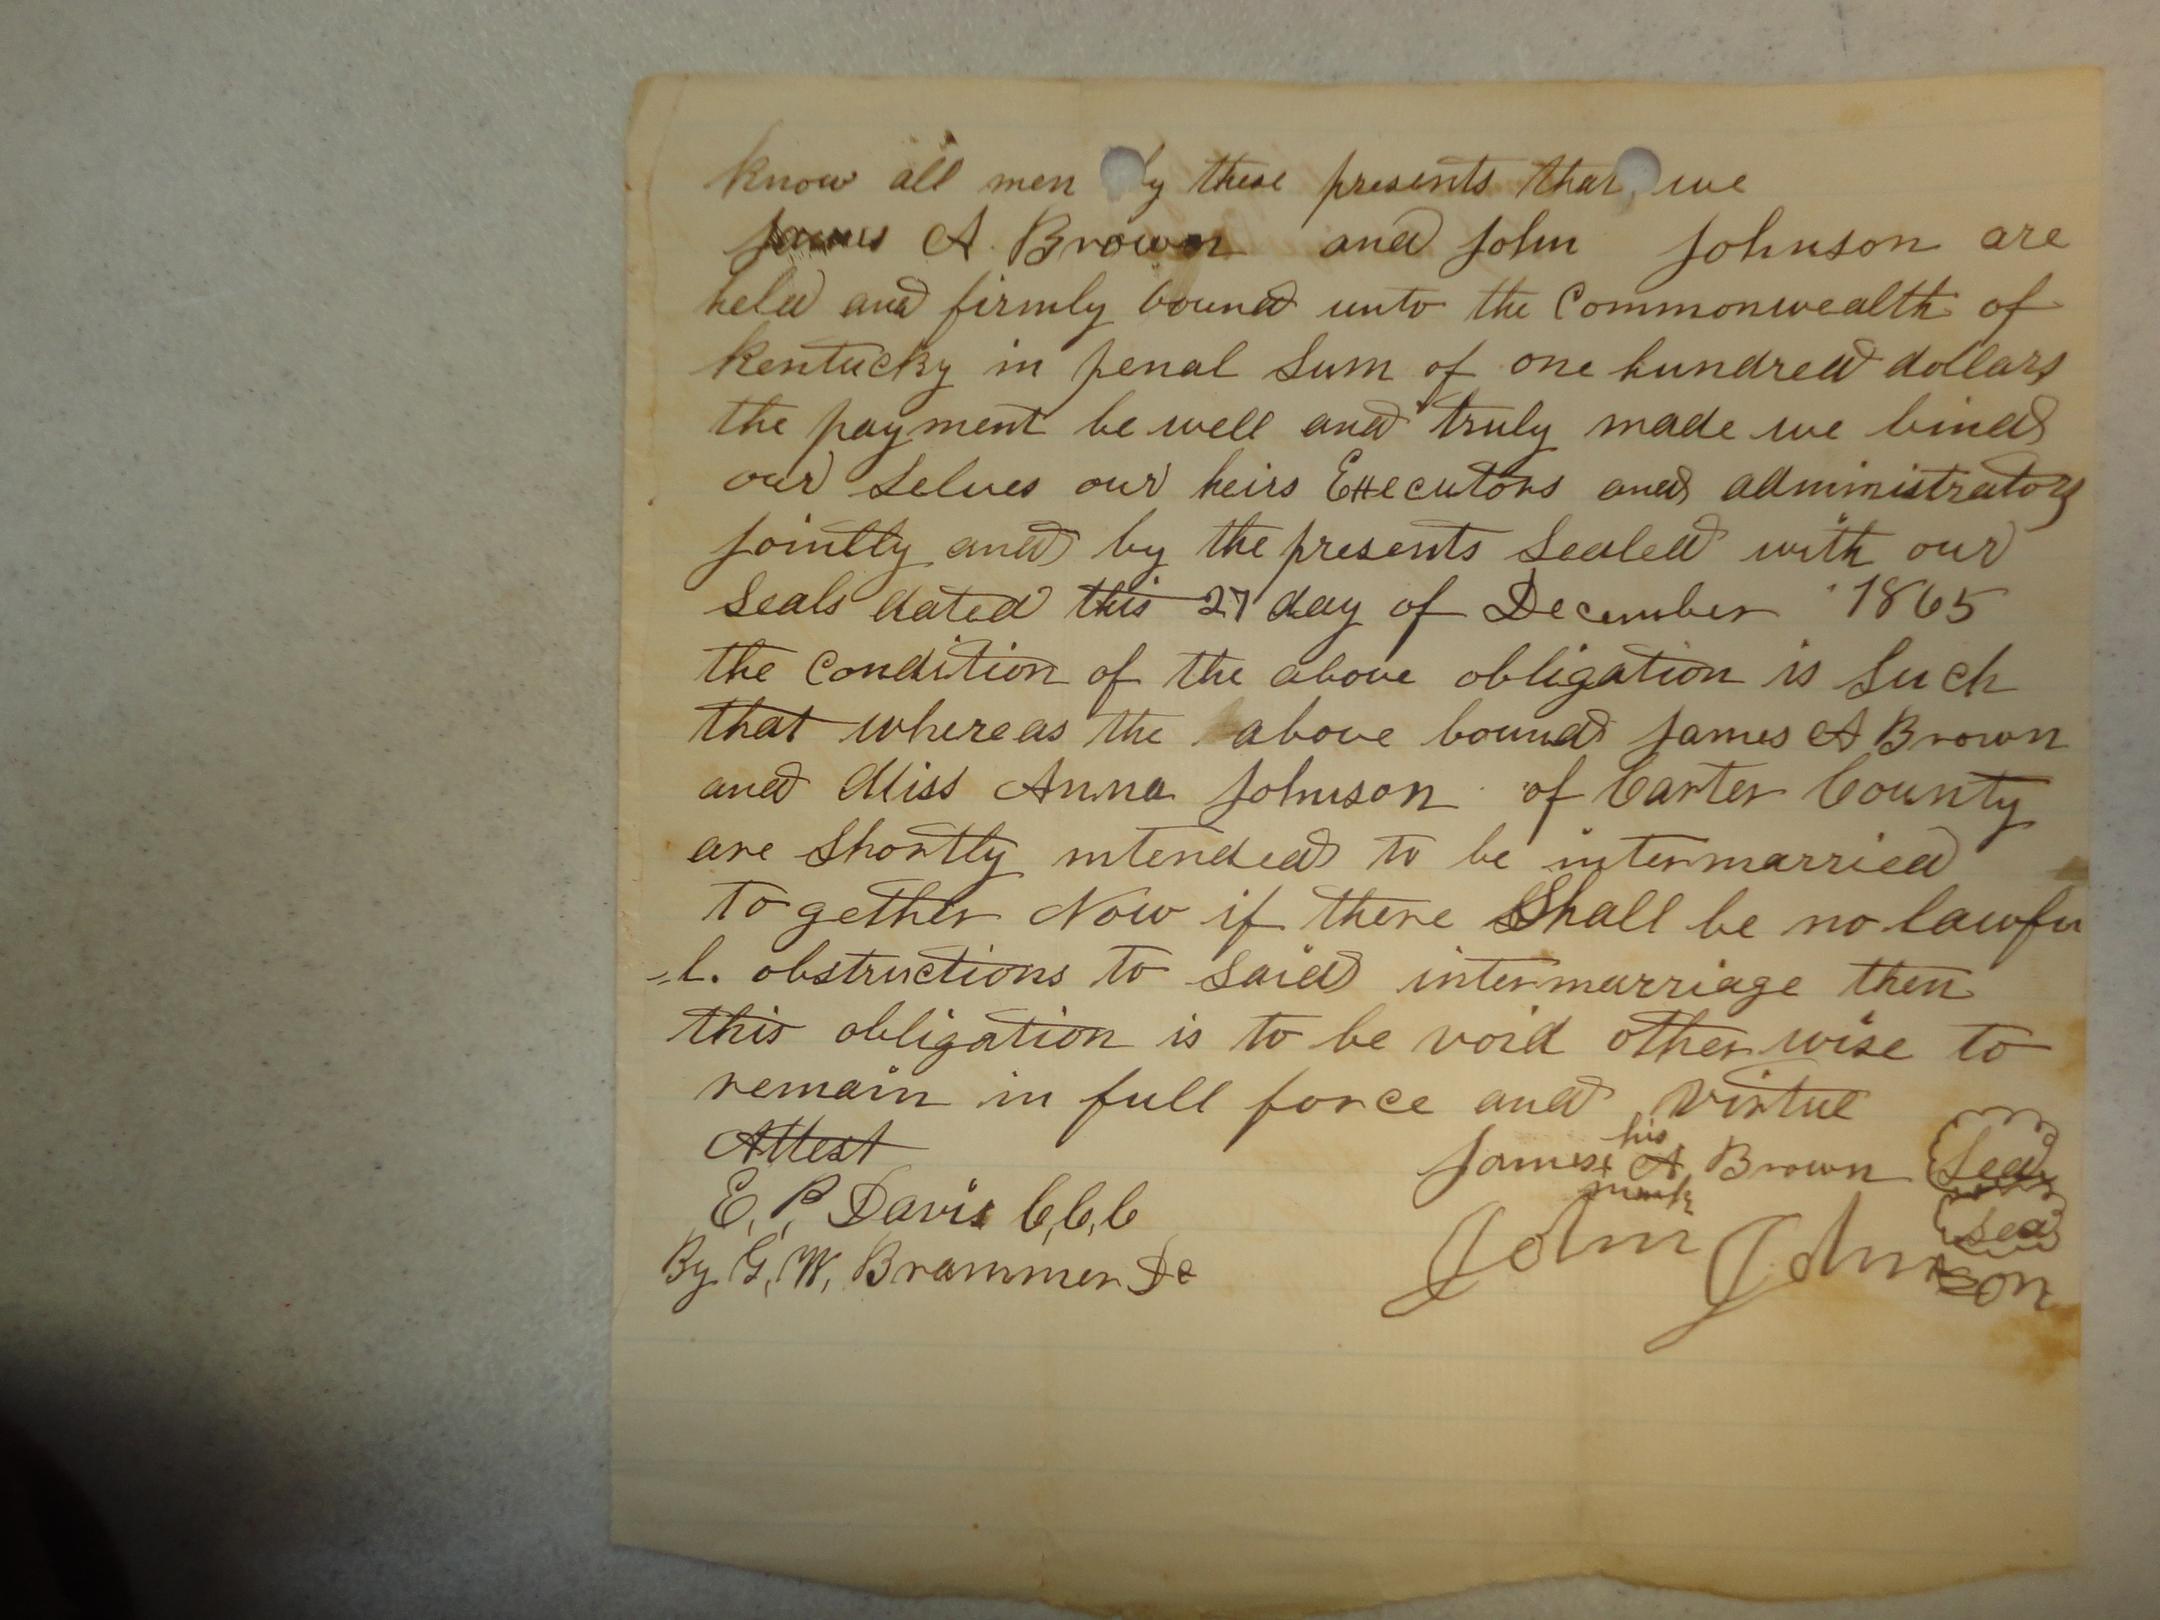 know all men by these presents that we
James A. Brown and John Johnson are
held and firmly bound unto the Commonwealth of
Kentucky in penal Sum of one hundred dollars
the payment be well and truly made we bind
our Selves our heirs Executors and administrators
jointly and by the presents Sealed with our
Seals dated this 27 day of December 1865
the Condition of the above obligation is Such
that whereas the above bound James A Brown
and Miss Anna Johnson of Carter County
are Shortly intended to be intermarried
to gether Now if there Shall be no lawfu
-l. obstructions to Said intermarriage then
this obligation is to be void other wise to
remain in full force and Virtue
Attest
E, P, Davis C,C,C
By G, W, Brammer Dc
his
James x A Brown Seal
mark
Seal
John Johnson